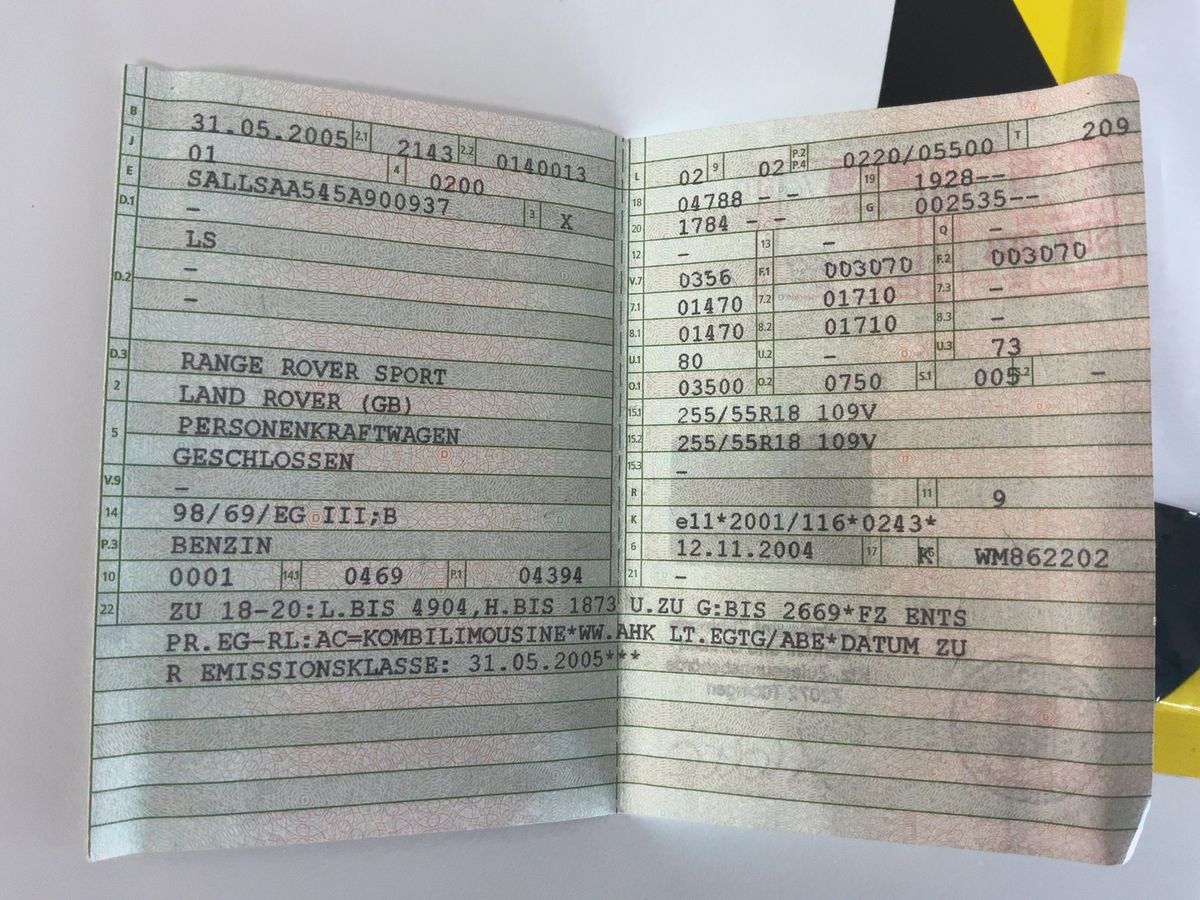 B 31.05.2005 2.1 2143 2.2 0140013
J 01 4 0200
E SALLSAA545A900937 3 X
D.1 –
LS
D.2 –
–
D.3 RANGE ROVER SPORT
2 LAND ROVER (GB)
5 PERSONENKRAFTWAGEN
GESCHLOSSEN
V.9 –
14 98/69/EG III;B
P.3 BENZIN
10 0001 14.1 0469 P.1 04394
L 02 9 02 P.2 P.4 0220/05500 T 209
18 04788 – – 19 1928––
20 1784 – – G 002535––
12 – 13 – Q –
V.7 0356 F.1 003070 F.2 003070
7.1 01470 7.2 01710 7.3 –
8.1 01470 8.2 01710 8.3 –
U.1 80 U.2 – U.3 73
O.1 03500 O.2 0750 S.1 005 S.2 –
15.1 255/55R18 109V
15.2 255/55R18 109V
15.3 –
R 11 9
K e11*2001/116*0243*
6 12.11.2004 17 K 16 WM862202
21 –
22 ZU 18-20:L.BIS 4904,H.BIS 1873 U.ZU G:BIS 2669*FZ ENTS
PR.EG-RL:AC=KOMBILIMOUSINE*WW.AHK LT.EGTG/ABE*DATUM ZU
R EMISSIONSKLASSE: 31.05.2005***